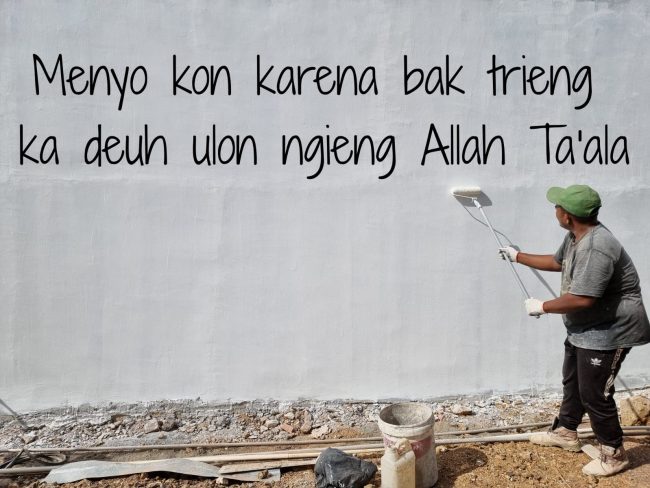 Menyo kon karena bak trieng
ka deuh ulon ngieng Allah Ta'ala